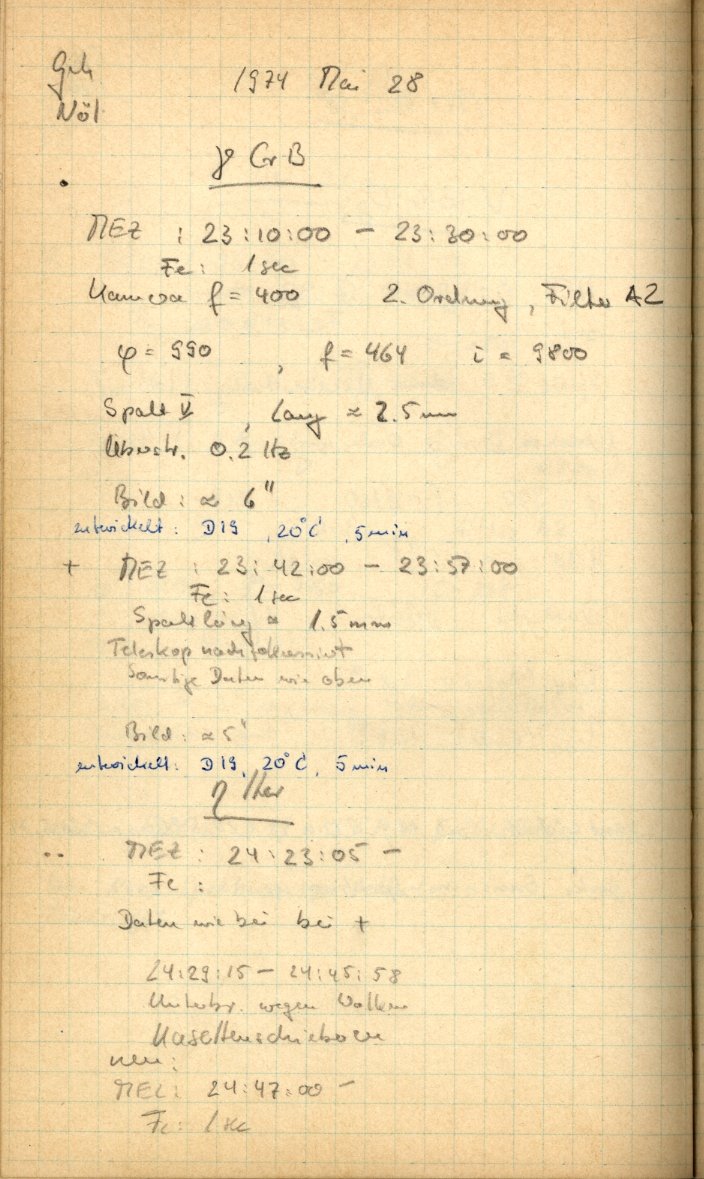 Geh
1974 Mai 28
Nöl
γ CrB
MEZ : 23:10:00 – 23:30:00
Fe: 1 sec
Kamera f = 400 2. Ordnung, Filter A2
φ = 990 , f = 464 i = 9800
Spalt V , lang ≈ 2.5 mm
Überstr. 0.2 Hz
Bild: ≈ 6"
entwickelt: D19, 20°C, 5 min
+ MEZ : 23:42:00 – 23:57:00
Fe: 1 sec
Spaltläng ≈ 1.5 mm
Teleskop nachfokussiert
Sonstige Daten wie oben
Bild: ≈ 5"
entwickelt: D19, 20°C, 5 min
η Her
.. MEZ : 24:23:05 –
Fe :
Daten wie bei bei +
24:29:15 – 24:45:58
Unterbr. wegen Wolken
Kasettenschieber
neu:
MEZ: 24:47:00 –
Fe: 1 sec